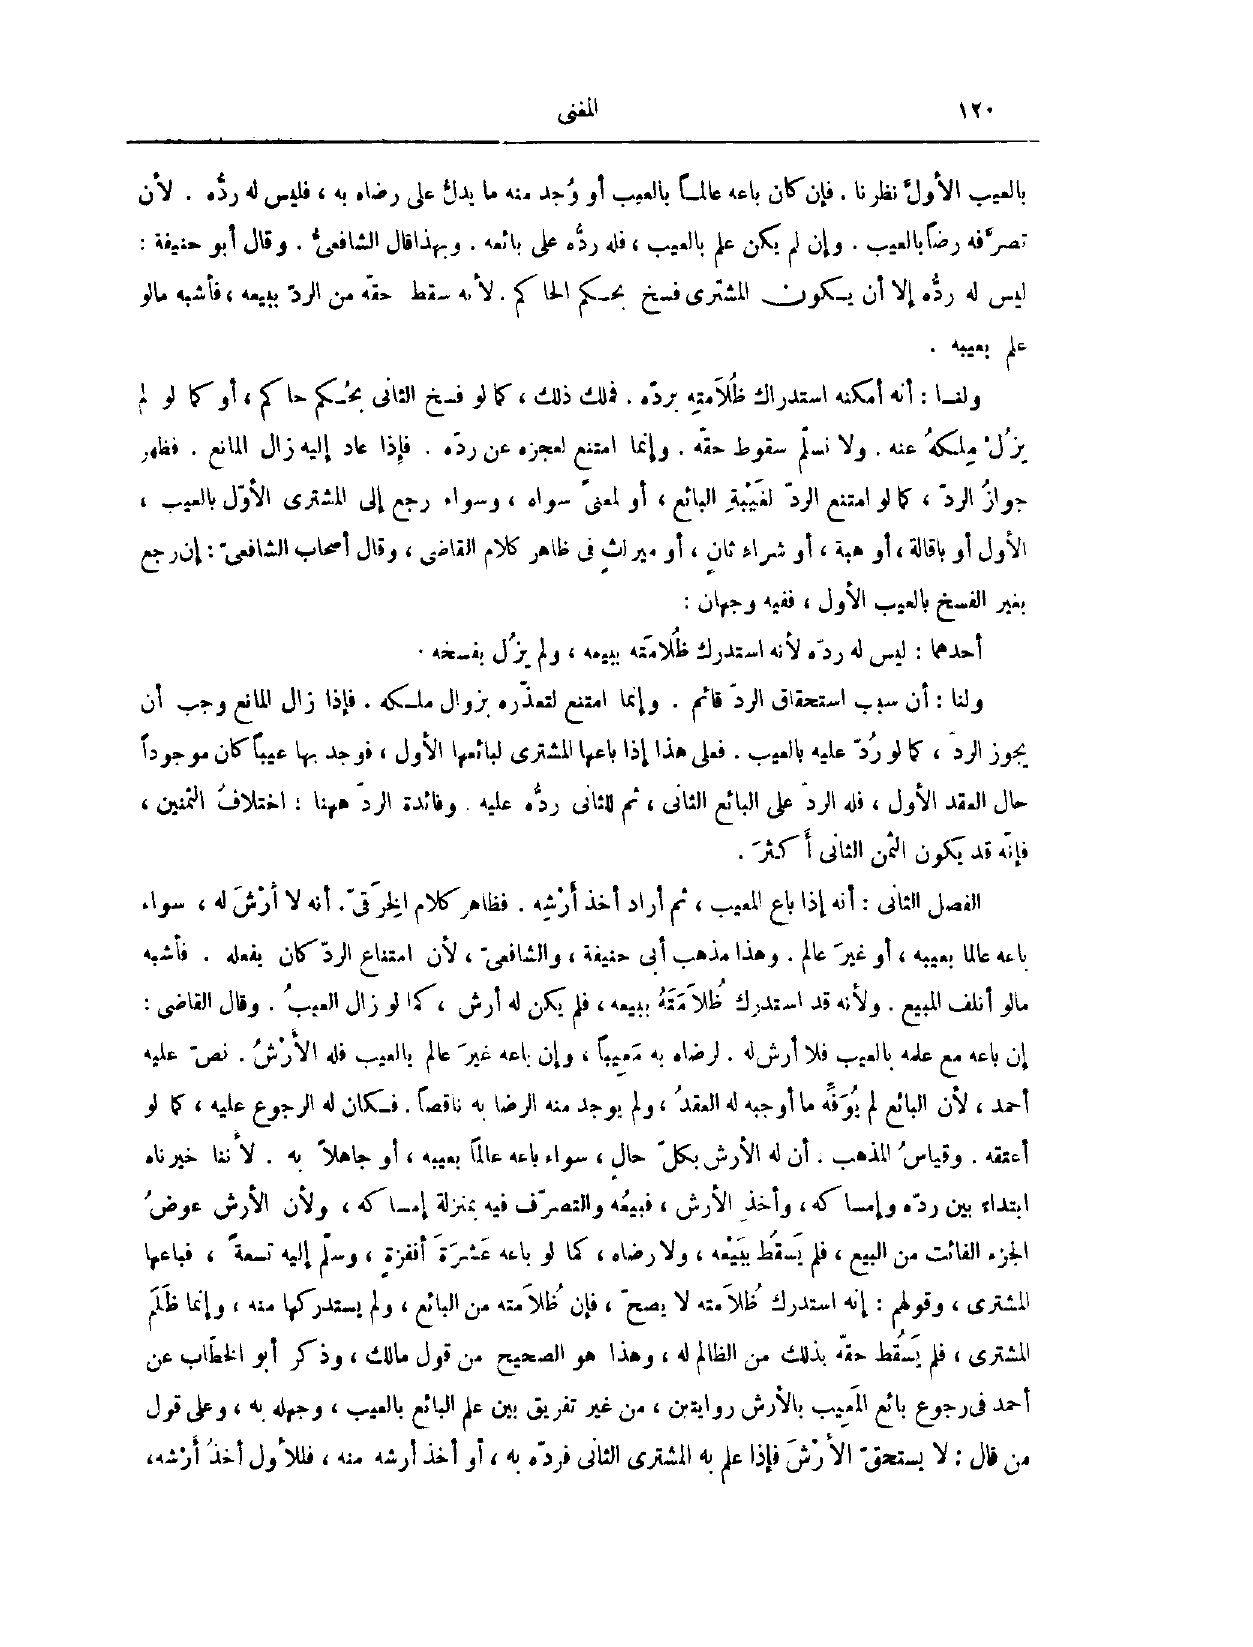 ١٢٠
المغنى
بالعيب الأولَّ نظرنا . فإن كان باعه عالمــاً بالعيب أو وُجد منه ما يدلُّ على رضاه به ، فليس له ردُّه . لأن
تصرَّفه رضاً بالعيب . وإن لم يكن علم بالعيب ، فله ردُّه على بائعه . وبهذا قال الشافعىُّ . وقال أبو حنيفة :
ليس له ردُّه إلا أن يـكون المشترى فسخ بحـكم الحاكم . لأنه سقط حقّه من الردّ ببيعه ، فأشبه مالو
علم بعيبه .
ولنـا : أنه أمكنه استدراك ظُلاَمتِه بردّه . فملك ذلك ، كما لو فسخ الثانى بحُـكم حاكم ، أو كما لو لم
يزُلْ مِلـكهُ عنه . ولا نسلّم سقوط حقّه . وإنما امتنع لعجزه عن ردّه . فإذا عاد إليه زال المانع . فظهر
جوازُ الردّ ، كما لو امتنع الردّ لغَيْبةِ البائع ، أو لمعنىً سواه ، وسواء رجع إلى المشترى الأوّل بالعيب ،
الأول أو باقالة ، أو هبة ، أو شراء ثانٍ ، أو ميراثٍ فى ظاهر كلام القاضى ، وقال أصحاب الشافعىّ : إن رجع
بغير الفسخ بالعيب الأول ، ففيه وجهان :
أحدهما : ليس له ردّه لأنه استدرك ظُلامَته ببيعه ، ولم يزُل بفسخه .
ولنا : أن سبب استحقاق الردّ قائم . وإنما امتنع لتعذّره بزوال ملـكه . فإذا زال المانع وجب أن
يجوز الردّ ، كما لو رُدّ عليه بالعيب . فعلى هذا إذا باعها المشترى لبائعها الأول ، فوجد بها عيباً كان موجوداً
حال العقد الأول ، فله الردّ على البائع الثانى ، ثم للثانى ردُّه عليه . وفائدة الردّ ههنا : اختلافُ الثمنين ،
فإنّه قد يكون الثمن الثانى أكثرَ .
الفصل الثانى : أنه إذا باع المعيب ، ثم أراد أخذ أرْشِه . فظاهر كلام الخِرَقىّ . أنه لا أرْشَ له ، سواء
باعه عالما بعيبه ، أو غيرَ عالم . وهذا مذهب أبى حنيفة ، والشافعىّ ، لأن امتناع الردّ كان بفعله . فأشبه
مالو أتلف المبيع . ولأنه قد استدرك ظُلاَمَتَهُ ببيعه ، فلم يكن له أرش ، كما لو زال العيبُ . وقال القاضى :
إن باعه مع علمه بالعيب فلا أرش له . لرضاه به مَعِيباً ، وإن باعه غيرَ عالم بالعيب فله الأرْشُ . نصّ عليه
أحمد ، لأن البائع لم يُوَفِّه ما أوجبه له العقدُ ، ولم يوجد منه الرضا به ناقصاً . فـكان له الرجوع عليه ، كما لو
أعتقه . وقياسُ المذهب . أن له الأرش بكلّ حالٍ ، سواء باعه عالماً بعيبه ، أو جاهلاً به . لأننا خيرناه
ابتداء بين ردّه وإمساكه ، وأخذِ الأرش ، فبيعُه والتصرّف فيه بمنزلة إمساكه ، ولأن الأرش عوضُ
الجزء الفائت من المبيع ، فلم يَسقُط ببَيْعه ، ولا رضاه ، كما لو باعه عَشرَةَ أقفزةٍ ، وسلّم إليه تسعةً ، فباعها
المشترى ، وقولهم : إنه استدرك ظُلاَمته لا يصحّ ، فإن ظُلاَمته من البائع ، ولم يستدركها منه ، وإنما ظَلَمَ
المشترى ، فلم يَسقُط حقّه بذلك من الظالم له ، وهذا هو الصحيح من قول مالك ، وذكر أبو الخطّاب عن
أحمد فى رجوع بائع المَعِيب بالأرش روايتين ، من غير تفريق بين علم البائع بالعيب ، وجهله به ، وعلى قول
من قال : لا يستحقّ الأرْشَ فإذا علم به المشترى الثانى فردّه به ، أو أخذ أرشه منه ، فللأول أخذُ أرْشه،